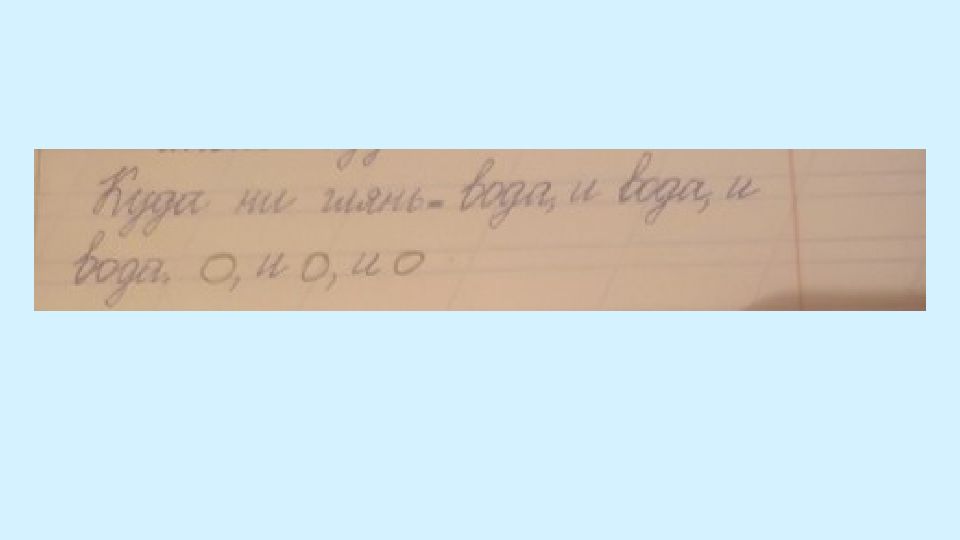 Куда ни глянь - вода, и вода, и
вода. О, и О, и О